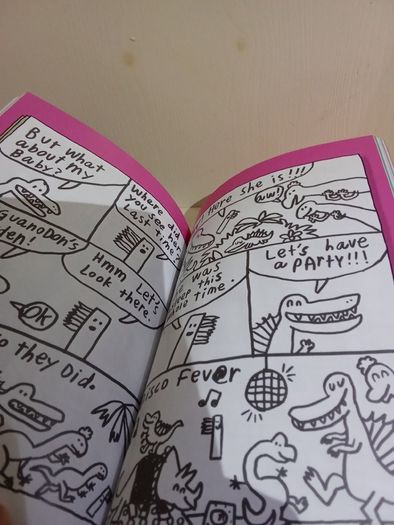 But what
about my
Baby?
Where did
you see her
last time
Guanodon's
den!
Hmm Let's
Look there.
OK
o they Did.
Here she is!!!
aw!
was
this
time
Let's have
a pArty!!!
Disco Fever